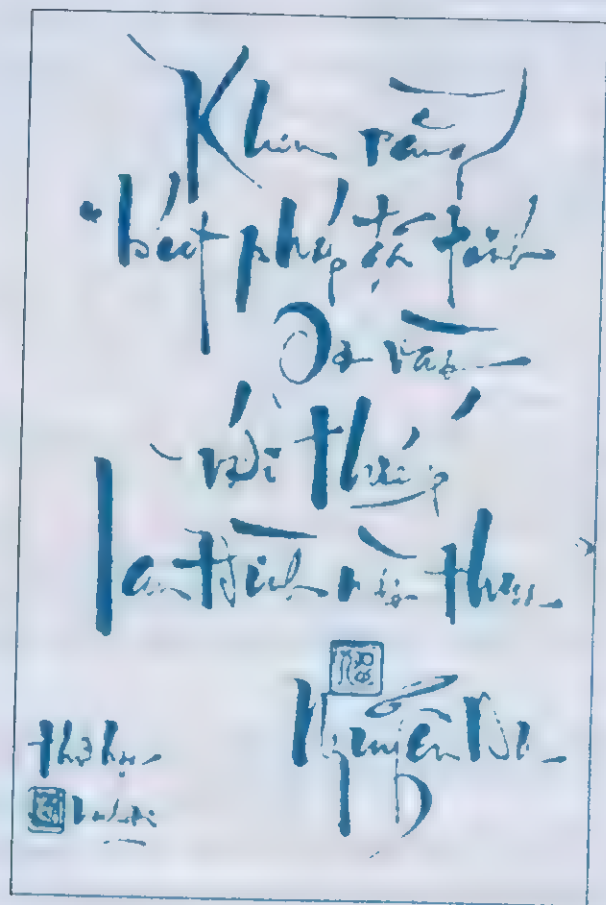 Khen rằng
"bút pháp đã tinh
So vào
với thiếp
lan Đình nào thua
Nguyễn Du